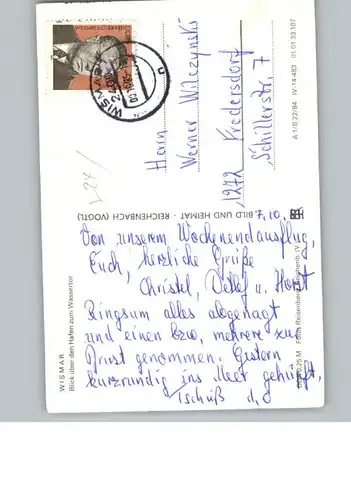 WISMAR
Herrn
Werner Wilczyński
1272 Fredersdorf
Schillerstr. 7
A 1/B 22/84 IV-14-483 01 01 33 107
BILD UND HEIMAT · REICHENBACH (VOGTL)
7.10.
Von unserem Wochenendausflug,
Euch, herzliche Grüße
Christel, Detlef u. Horst
Ringsum alles abgenagt
und einen bzw. mehrere zur
Brust genommen. Gestern
kurzrundig ins Meer gehüpft,
Tschüß d. O
WISMAR
Blick über den Hafen zum Wassertor
0,25 M Foto: Reisenbe